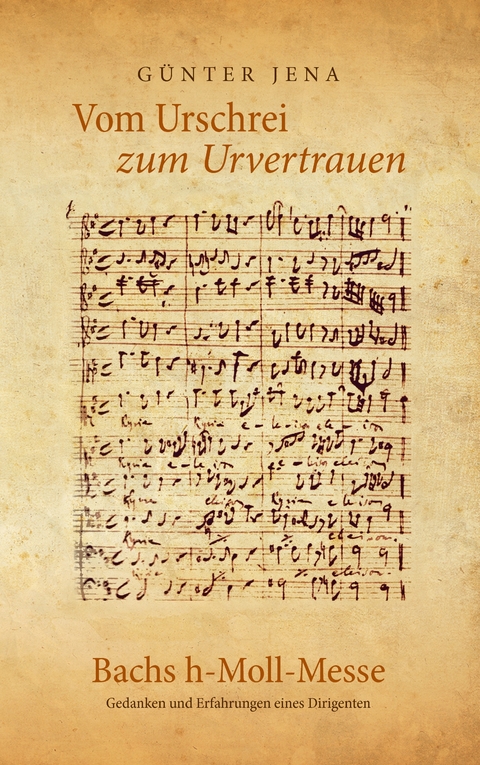 GÜNTER JENA
Vom Urschrei
zum Urvertrauen
Kyrie Kyrie e-le-ison e-le-i-son
Kyrie e-le-ison eleison
Kyrie eleison Kyrie eleison
Kyrie eleison.
eleison.
Bachs h-Moll-Messe
Gedanken und Erfahrungen eines Dirigenten